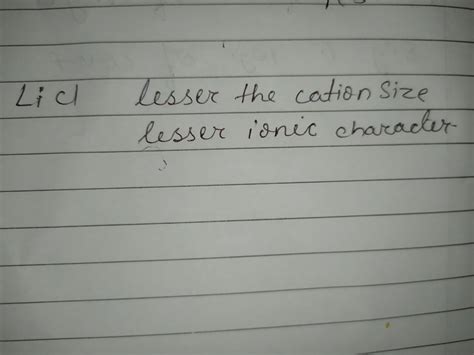 LiCl lesser the cation size
lesser ionic character